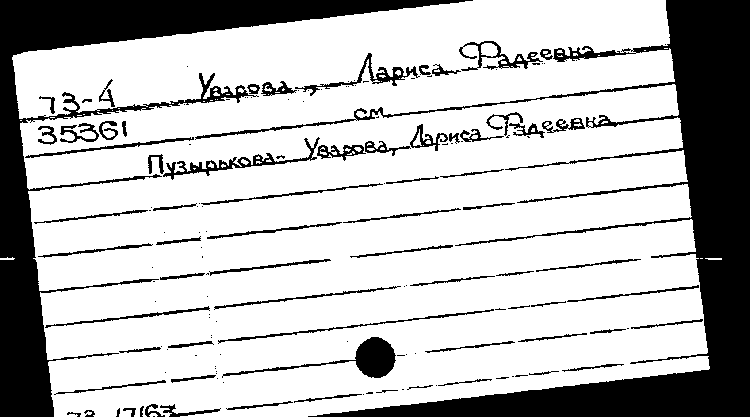 73-4 Уварова, Лариса Фадеевна
35361 см.
Пузырькова-Уварова, Лариса Фадеевна
73-17163